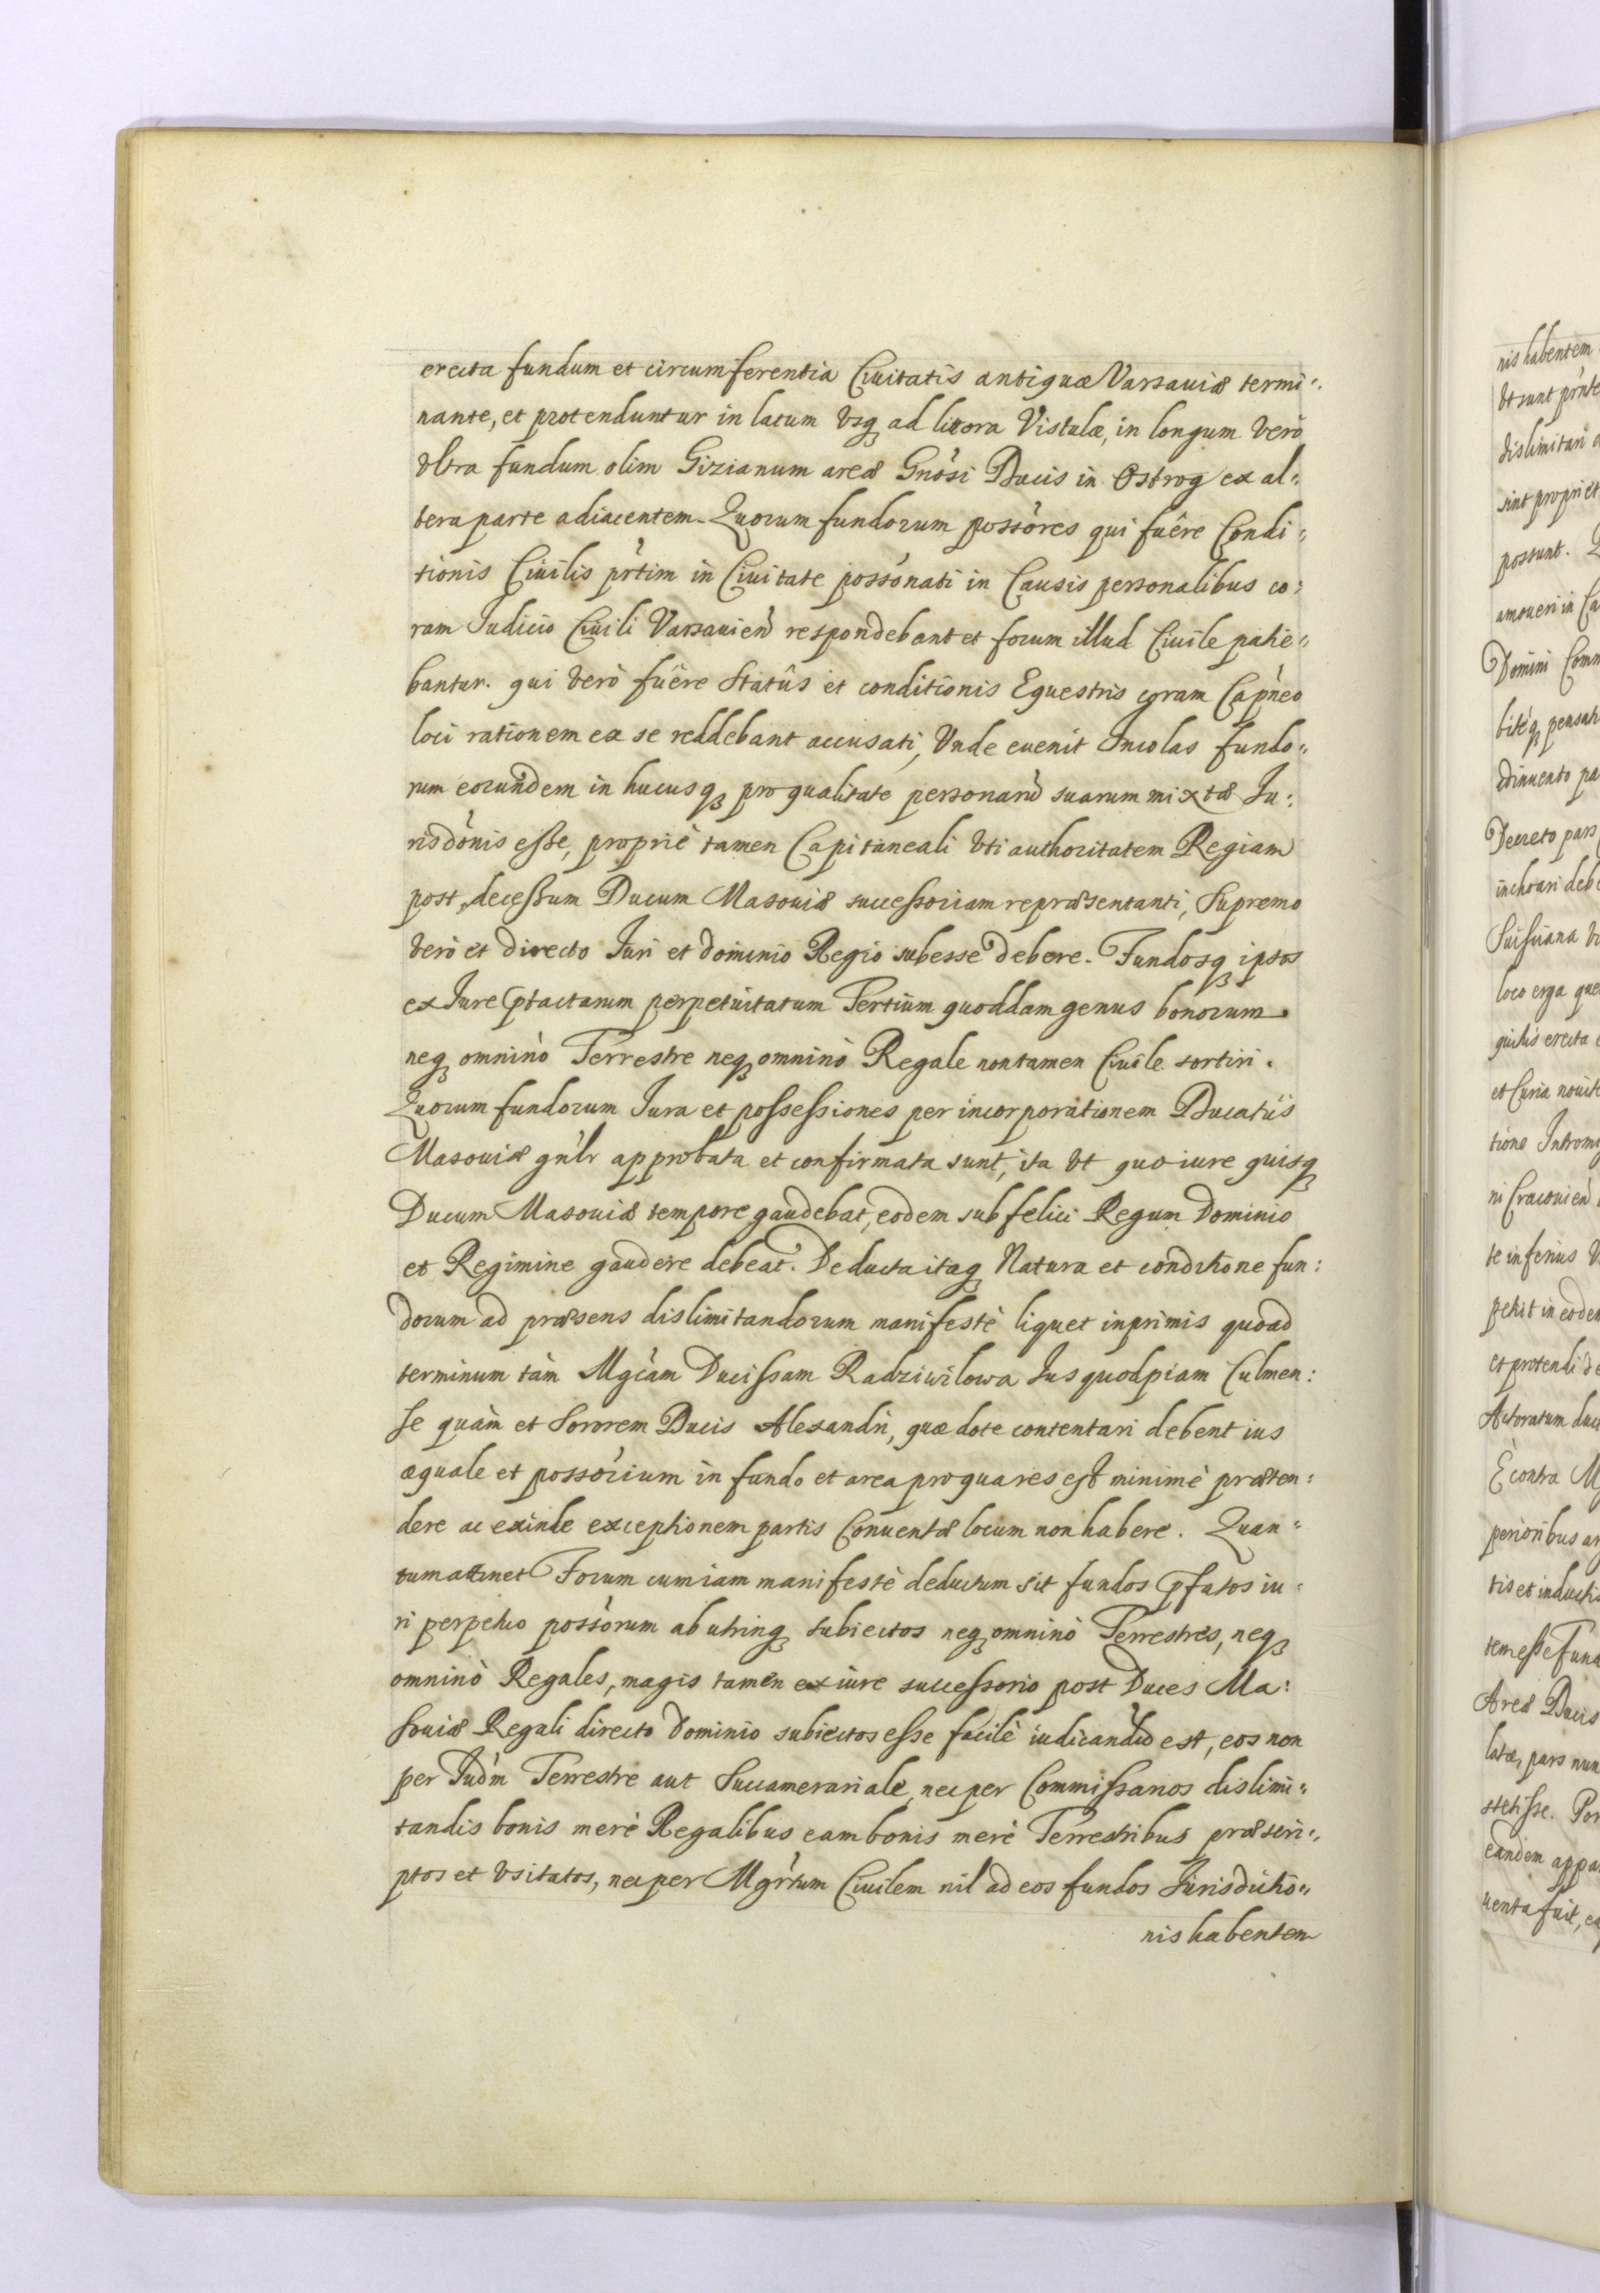 erecta fundum et circumferentia Ciuitatis antiquæ Varsauiæ termi:
nante, et protenduntur in latum vsq ad litora Vistulæ, in longum verò
vltra fundum olim Gizianum areæ Gnosi Ducis in Ostrog ex al:
tera parte adiacentem. Quorum fundorum possores qui fuêre Condi:
tionis Ciuilis prtim in Ciuitate possonati in Causis personalibus co:
ram Iudicio Ciuili Varsauien respondebant et forum illud Ciuile patie:
bantur. qui verò fuêre Statûs et conditionis Equestris coram Capneo
loci rationem ex se reddebant accusati, Vnde euenit Incolas fundo:
rum eorundem in hucusq pro qualitate personarum suarum mixtæ Iu:
risdonis esse, propriè tamen Capitaneali vti authoritatem Regiam
post decessum Ducum Masouiæ successoriam repræsentanti, Supremo
verò et directo Iuri et dominio Regio subesse debere. Fundosq ipsos
ex Iure tactarum perpetuitatum Tertium quoddam genus bonorum
neq omninò Terrestre neq omninò Regale non tamen Ciuile sortiri.
Quorum fundorum Iura et possessiones per incorporationem Ducatûs
Masouiæ gnlr approbata et confirmata sunt, ita vt quo iure quisq
Ducum Masouiæ tempore gaudebat, eodem sub felici Regum Dominio
et Regimine gaudere debeat. Deducta itaq Natura et conditione fun:
dorum ad præsens dislimitandorum manifestè liquet inprimis quoad
terminum tàm Mgcam Ducissam Radziwilowa Ius quodpiam Culmen:
se quàm et Sororem Ducis Alexandri, quæ dote contentari debent ius
æquale et possorium in fundo et area pro qua res est minimè præten:
dere ac exinde exceptionem partis Conuentæ locum non habere. Quan:
tum attinet Forum cum iam manifestè deductum sit fundos pfatos iu:
ri perpetuo possorum ab utrinq subiectos neq omninò Terrestres, neq
omninò Regales, magis tamen ex iure successorio post Duces Ma:
souiæ Regali directo Dominio subiectos esse facilè iudicandum est, eos non
per Iudm Terrestre aut Succamerariale, nec per Commissarios dislimi:
tandis bonis merè Regalibus eam bonis merè Terrestribus præscri:
ptos et vsitatos, nec per Mgrtum Ciuilem nil ad eos fundos Iurisdictio:
nis habentem